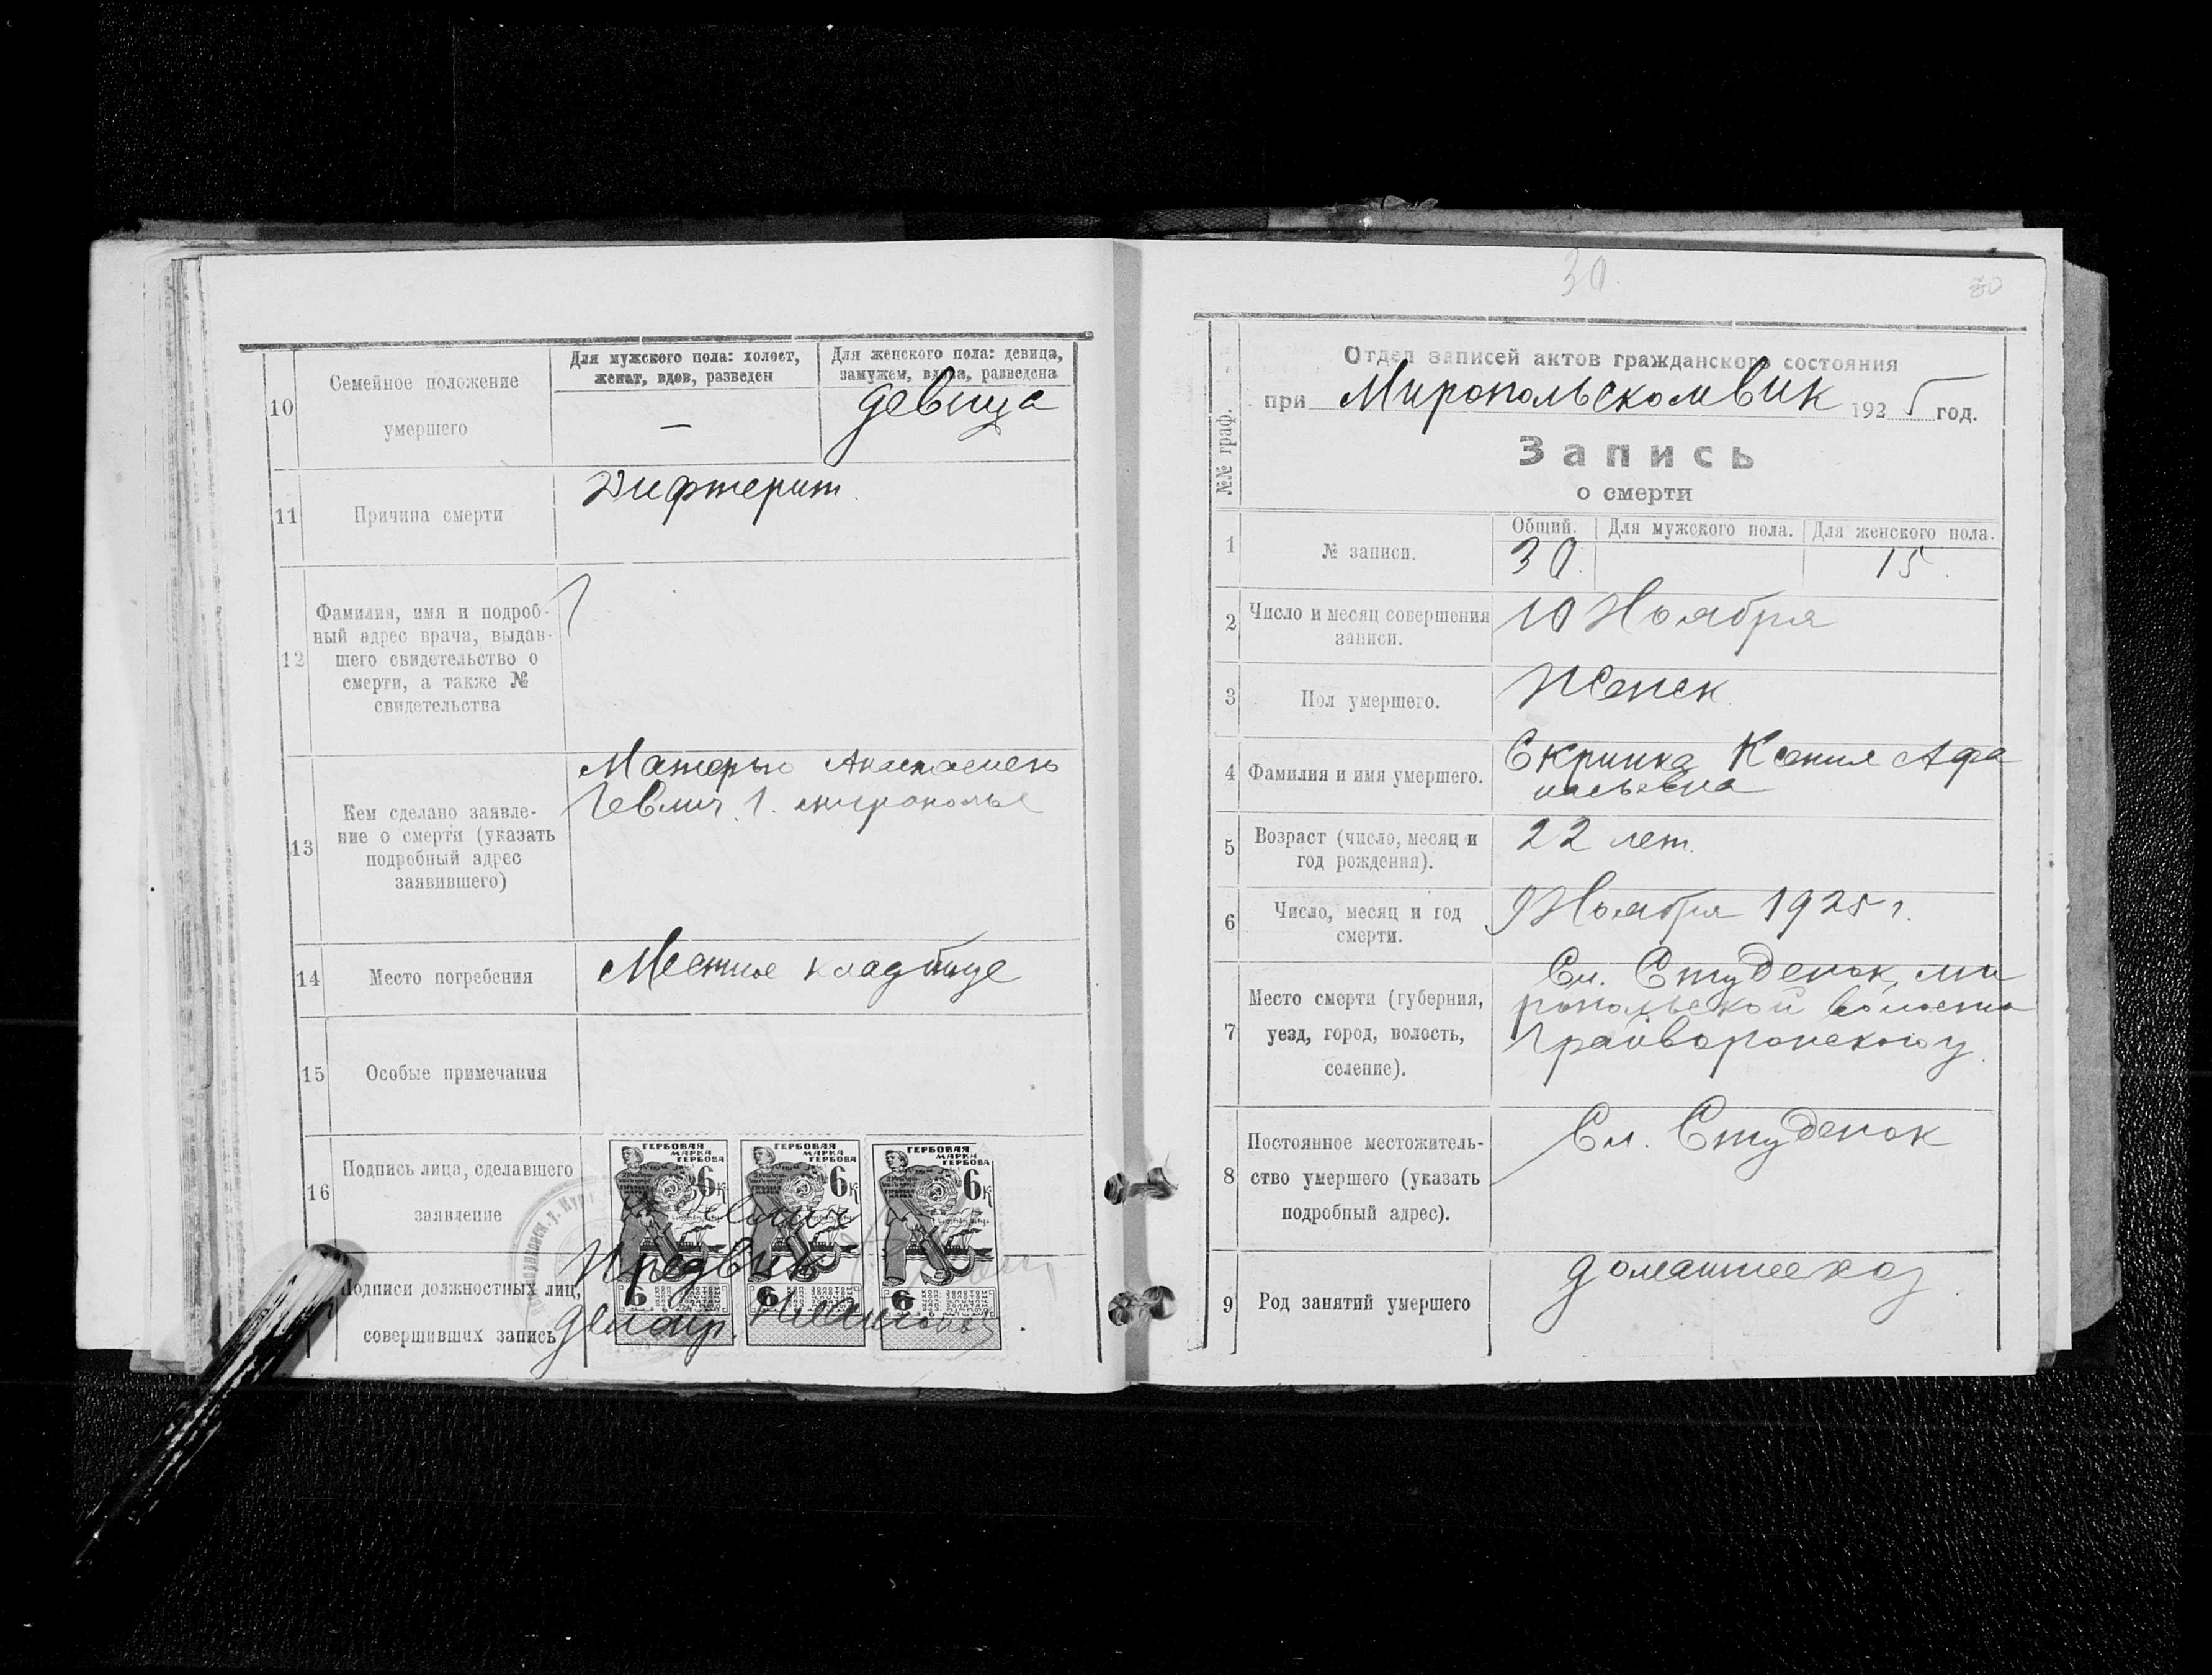 10
Семейное положение
умершего
Для мужского пола: холост,
женат, вдов, разведен
—
Для женского пола: девица,
замужем, вдова, разведена
девица
11
Причина смерти
Дифтерит
12
Фамилия, имя и подроб-
ный адрес врача, выдав-
шего свидетельство о
смерти, а также №
свидетельства
13
Кем сделано заявле-
ние о смерти (указать
подробный адрес
заявившего)
Матерью
14
Место погребения
Местное кладбище
15
Особые примечания
16
Подпись лица, сделавшего
заявление
Подписи должностных лиц,
совершивших запись
ГЕРБОВАЯ
МАРКА
ГЕРБОВА
6к
6
ГЕРБОВАЯ
МАРКА
ГЕРБОВА
6к
6
ГЕРБОВАЯ
МАРКА
ГЕРБОВА
6к
6
Предвик
Делопр.
30
30
№№ граф.
Отдел записей актов гражданского состояния
при Миропольском вик 1925 год.
Запись
о смерти
1
№ записи.
Общий. Для мужского пола. Для женского пола.
30. 15
2
Число и месяц совершения
записи.
10 Ноября
3
Пол умершего.
Женск
4
Фамилия и имя умершего.
Скрипка Ксения Афа
насьевна
5
Возраст (число, месяц и
год рождения).
22 лет.
6
Число, месяц и год
смерти.
9 Ноября 1925 г.
7
Место смерти (губерния,
уезд, город, волость,
селение).
Сл. Студенок, ми
ропольской волости
Грайворонского у.
8
Постоянное местожитель-
ство умершего (указать
подробный адрес).
Сл. Студенок
9
Род занятий умершего
домашнее хоз